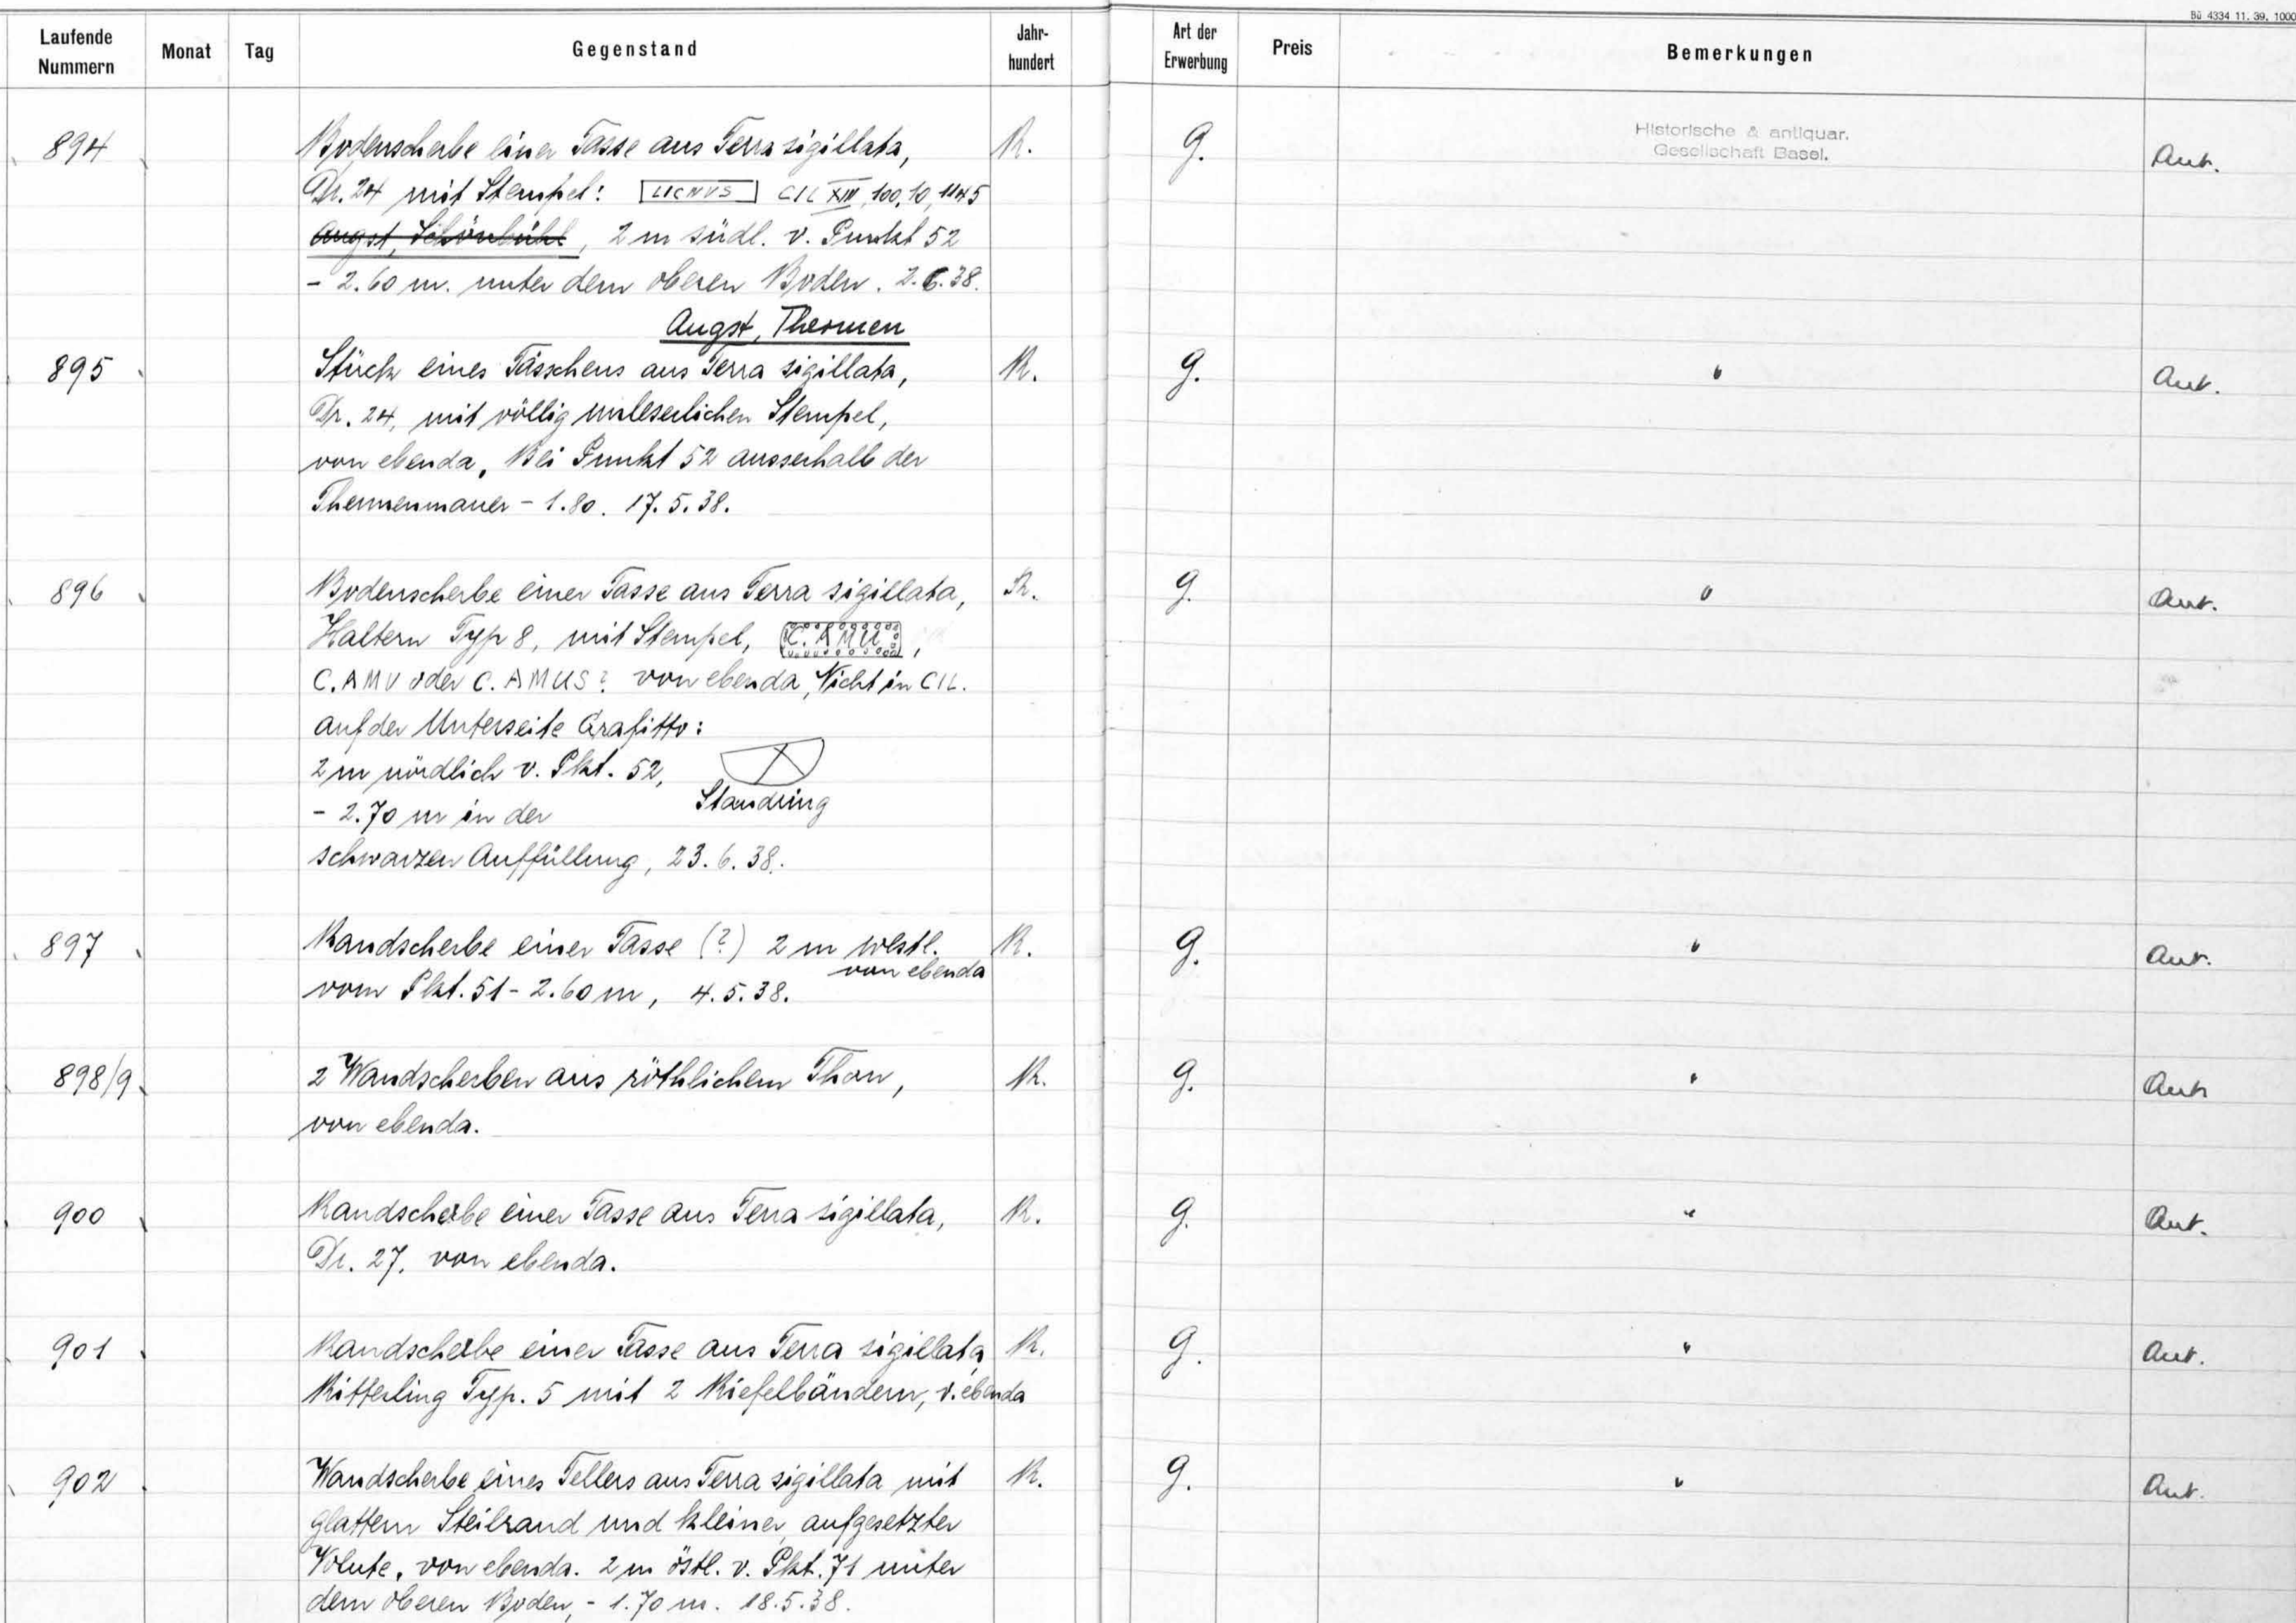 Bü 4334 11. 39. 1000
Laufende Nummern Monat Tag Gegenstand Jahr-hundert Art der Erwerbung Preis Bemerkungen
894 Bodenscherbe einer Tasse aus Terra sigillata, R. G. Historische & antiquar. Gesellschaft Basel. Ant.
Dr. 24 mit Stempel: LICNVS CIL XIII, 100,10, 1145
Augst, Schönbühl, 2 m südl. v. Punkt 52
- 2.60 m. unter dem oberen Boden. 2.6.38.
Augst, Thermen
895 Stück eines Tässchens aus Terra sigillata, R. G. " Ant.
Dr. 24, mit völlig unleserlichen Stempel,
von ebenda. Bei Punkt 52 ausserhalb der
Thermenmauer - 1.80. 17.5.38.
896 Bodenscherbe einer Tasse aus Terra sigillata, R. G. " Ant.
Haltern Typ 8, mit Stempel, C. AMU,
C. AMV oder C. AMUS? von ebenda, Nicht in CIL.
auf der Unterseite Grafitto:
2 m nördlich v. Pkt. 52,
Standring
- 2.70 m in der
schwarzen Auffüllung, 23.6.38.
897 Randscherbe einer Tasse (?) 2 m westl. R. G. " Ant.
von ebenda
vom Pkt. 51 - 2.60 m, 4.5.38.
898/9 2 Wandscherben aus röthlichem Thon, R. G. " Ant
von ebenda.
900 Randscherbe einer Tasse aus Terra sigillata, R. G. " Ant.
Dr. 27. von ebenda.
901 Randscherbe einer Tasse aus Terra sigillata R. G. " Ant.
Ritterling Typ. 5 mit 2 Riefelbändern, v. ebenda
902 Wandscherbe eines Tellers aus Terra sigillata mit R. G. " Ant.
glattem Steilrand und kleiner, aufgesetzter
Volute. von ebenda. 2 m östl. v. Pkt. 71 unter
dem oberen Boden, - 1.70 m. 18.5.38.